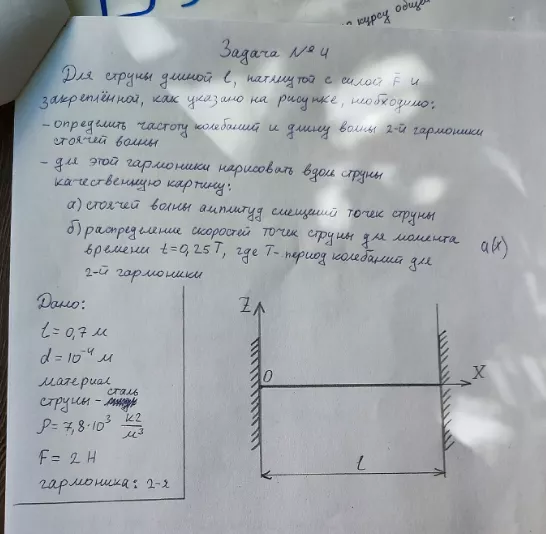 по курсу общей
Задача №4
Для струны длиной l, натянутой с силой F⃗ и
закреплённой, как указано на рисунке, необходимо:
- определить частоту колебаний и длину волны 2-й гармоники
стоячей волны
- для этой гармоники нарисовать вдоль струны
качественную картину:
а) стоячей волны амплитуд смещений точек струны
б) распределение скоростей точек струны для момента
времени t=0,25T, где T- период колебаний для
2-й гармоники
a(x)
Дано:
l = 0,7 м
d = 10⁻⁴ м
материал
струны - сталь
ρ = 7,8·10³ кг/м³
F = 2 Н
гармоника: 2-я
Z
O
X
l